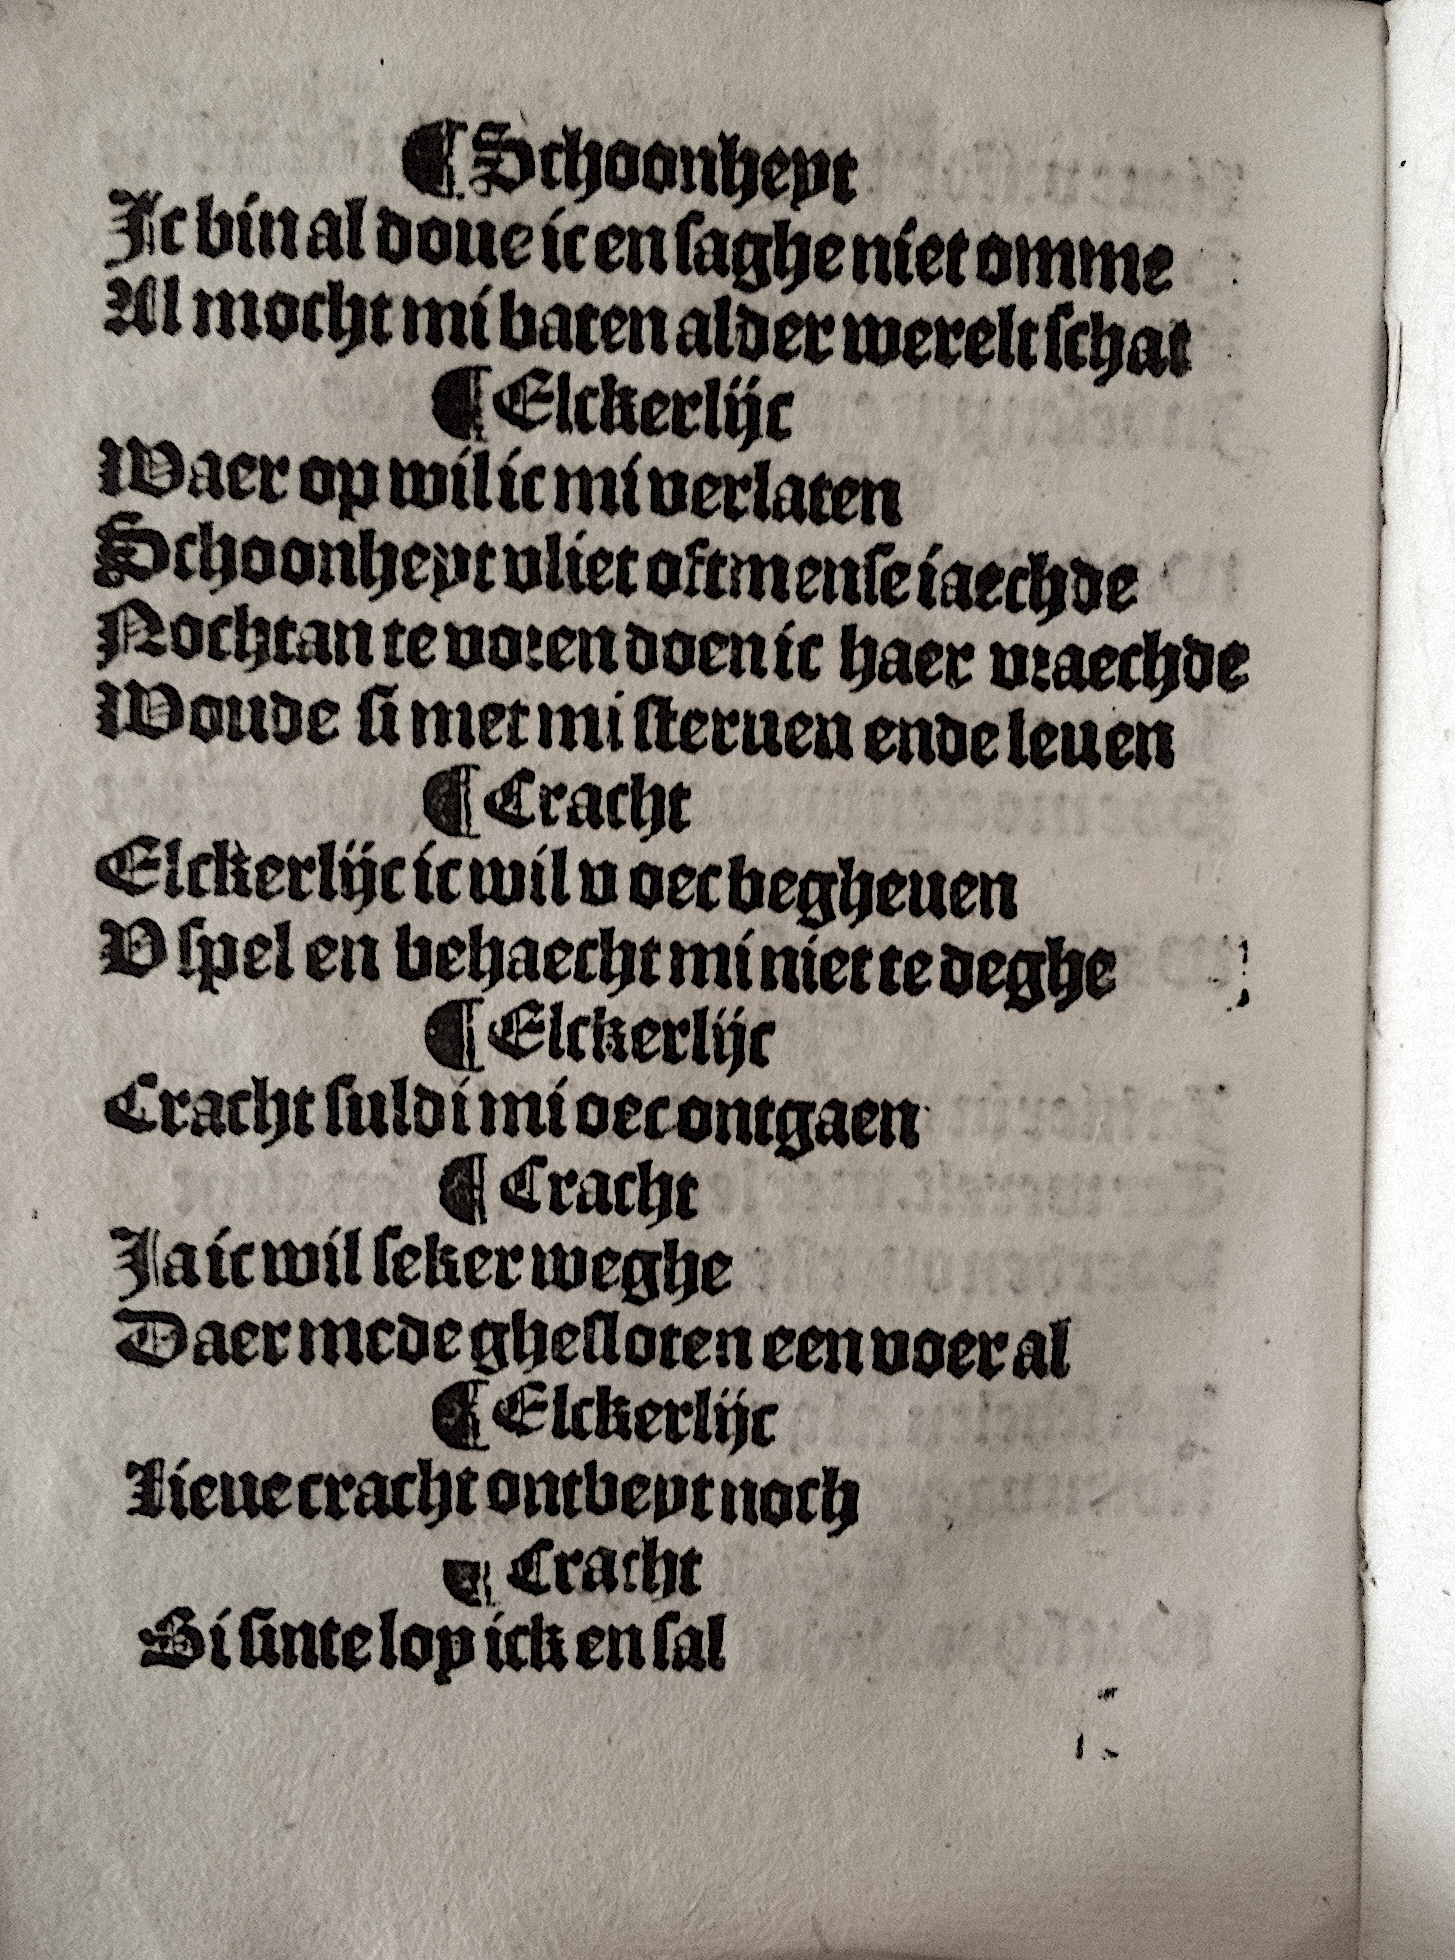 ¶ Schoonheyt
Ic bin al doue ic en saghe niet omme
Al mocht mi baten alder werelt schat
¶ Elckerlijc
Waer op wil ic mi verlaten
Schoonheyt vliet oft mense iaechde
Nochtan te voren doen ic haer vraechde
Woude si met mi steruen ende leuen
¶ Cracht
Elckerlijc ic wil v oec begheuen
V spel en behaecht mi niet te deghe
¶ Elckerlijc
Cracht suldi mi oec ontgaen
¶ Cracht
Ja ic wil seker weghe
Daer mede ghesloten een voer al
¶ Elckerlijc
Lieue cracht ontbeyt noch
¶ Cracht
Bi sinte loy ick en sal